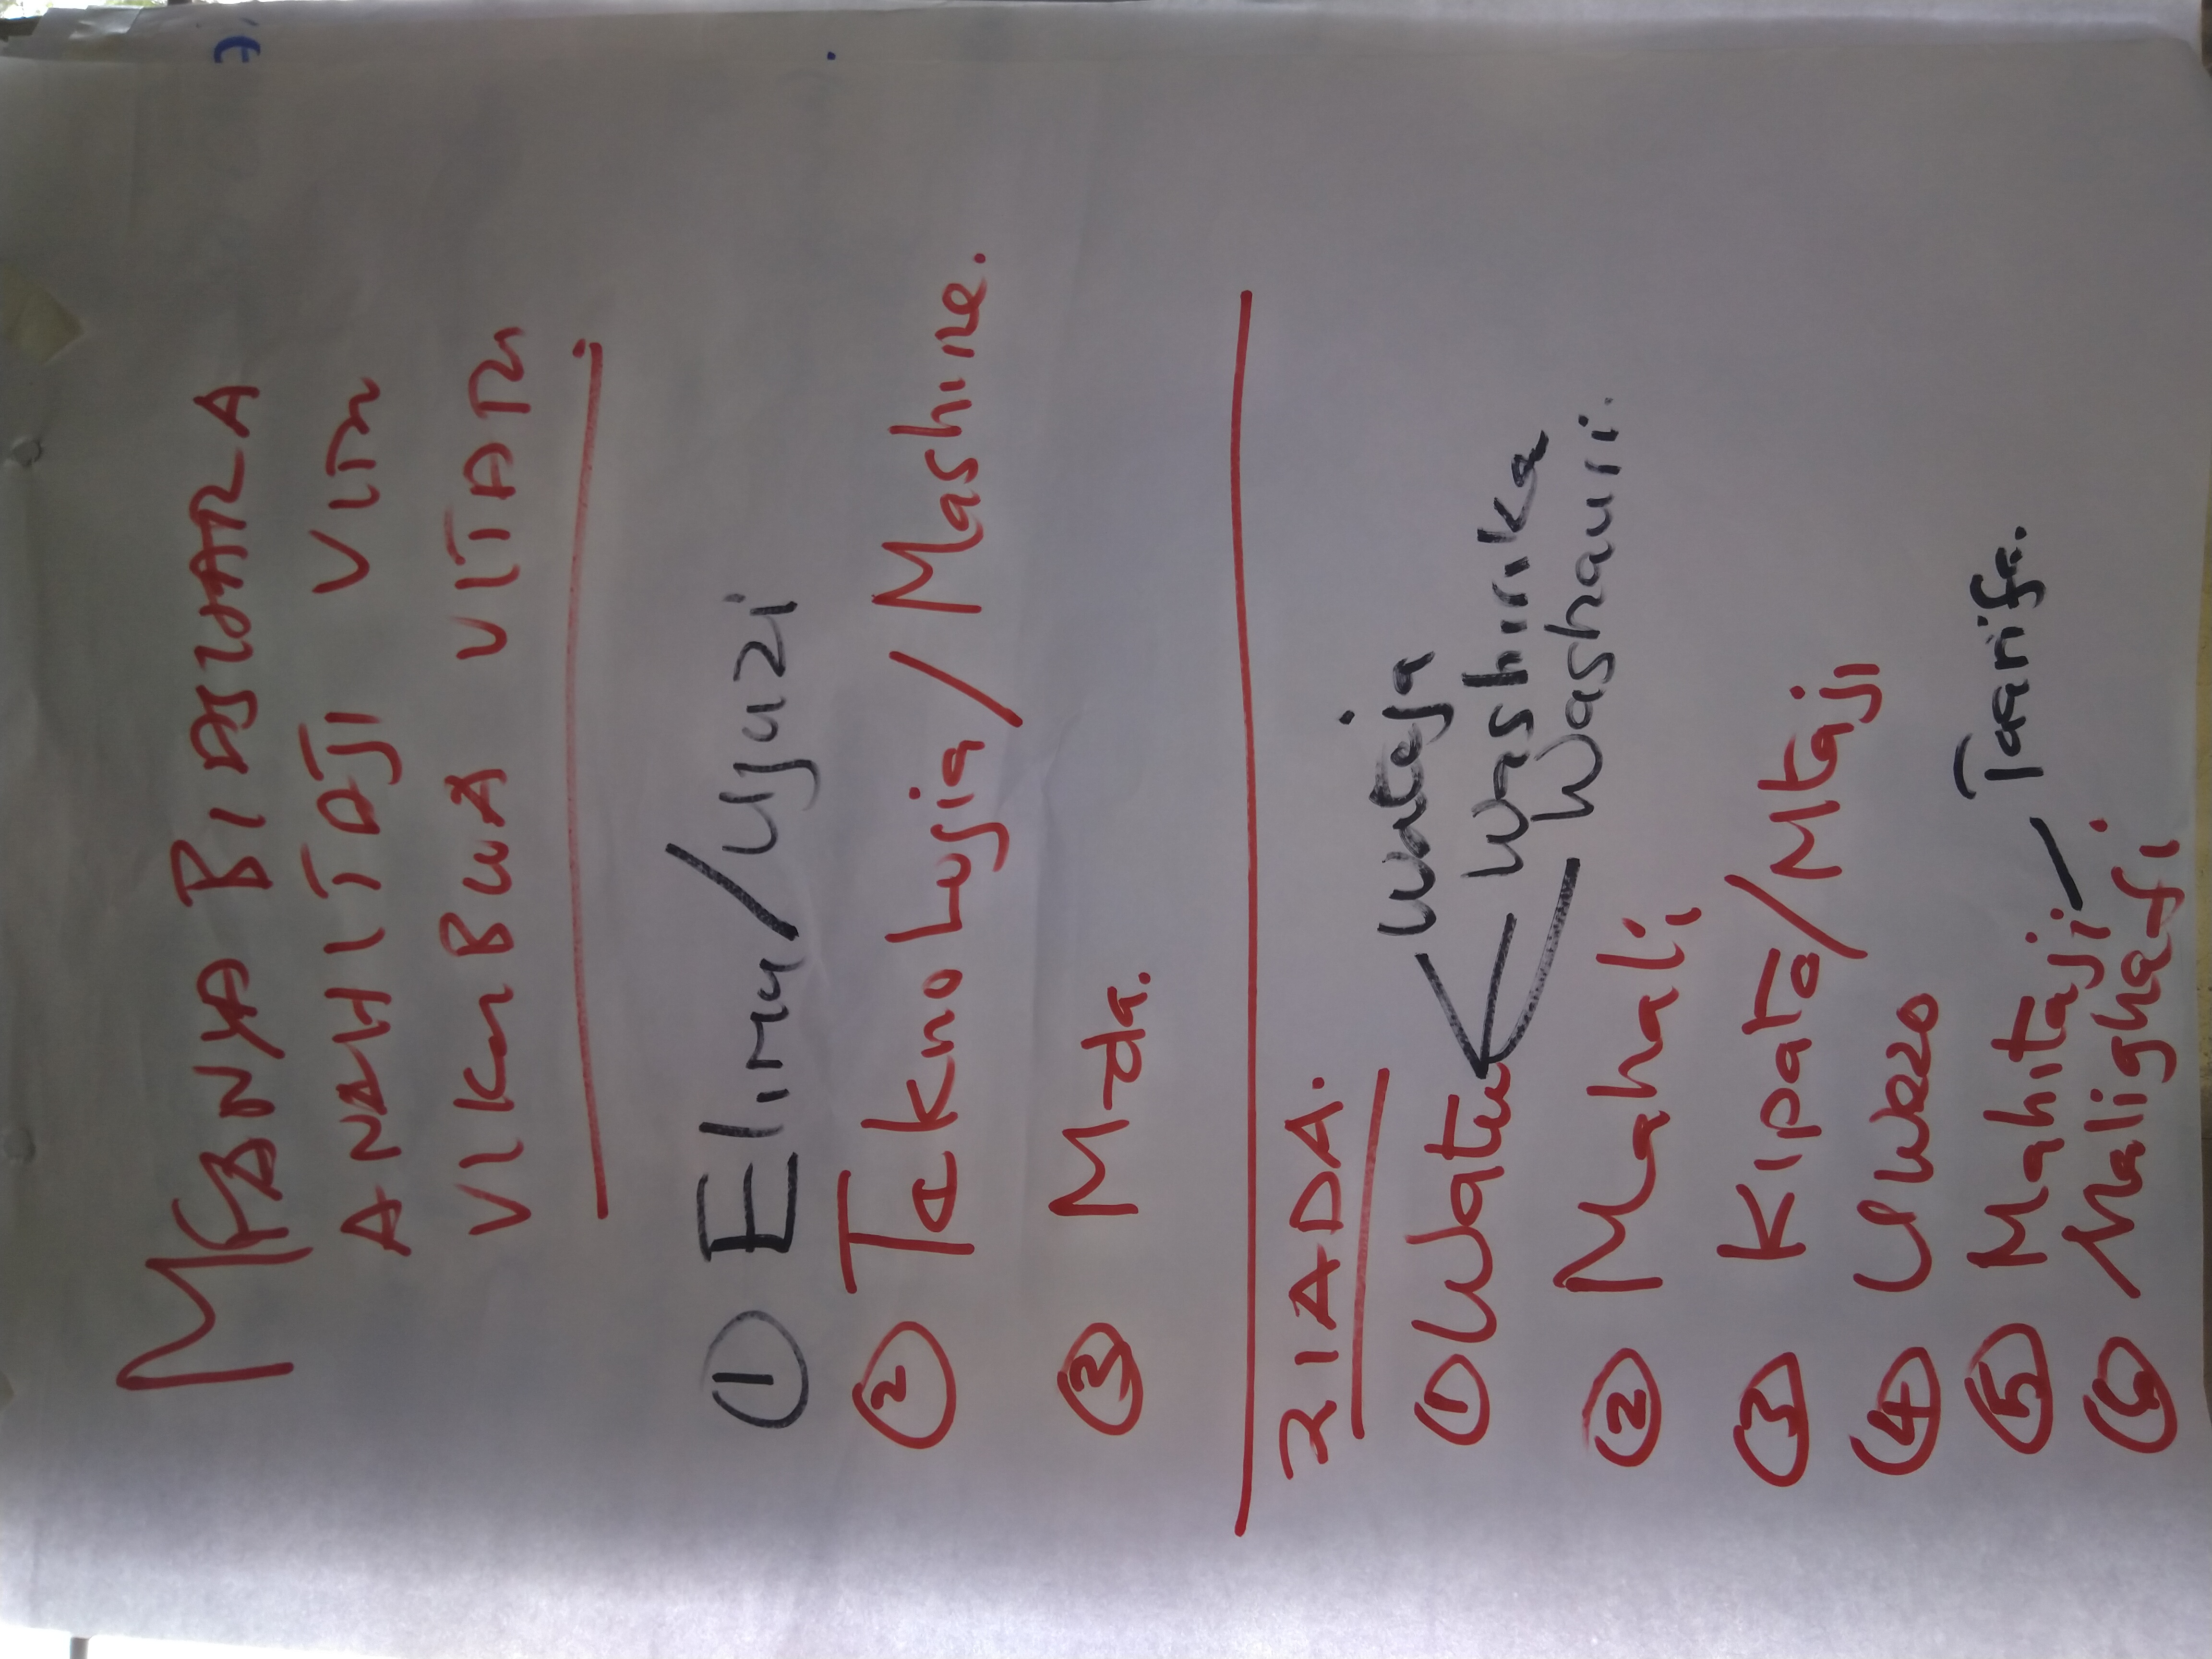 MFANYA BIASHARA
ANAHITAJI VITU
VIKUBWA VITATU
① Elimu/Ujuzi
② Teknolojia/Mashine.
③ M-da.
ZIADA.
① Watu
Wateja
Washirika
Washauri.
② Mahali
③ Kipato/Mtaji
④ Uwezo
⑤ Mahitaji - Taarifa.
⑥ Malighafi